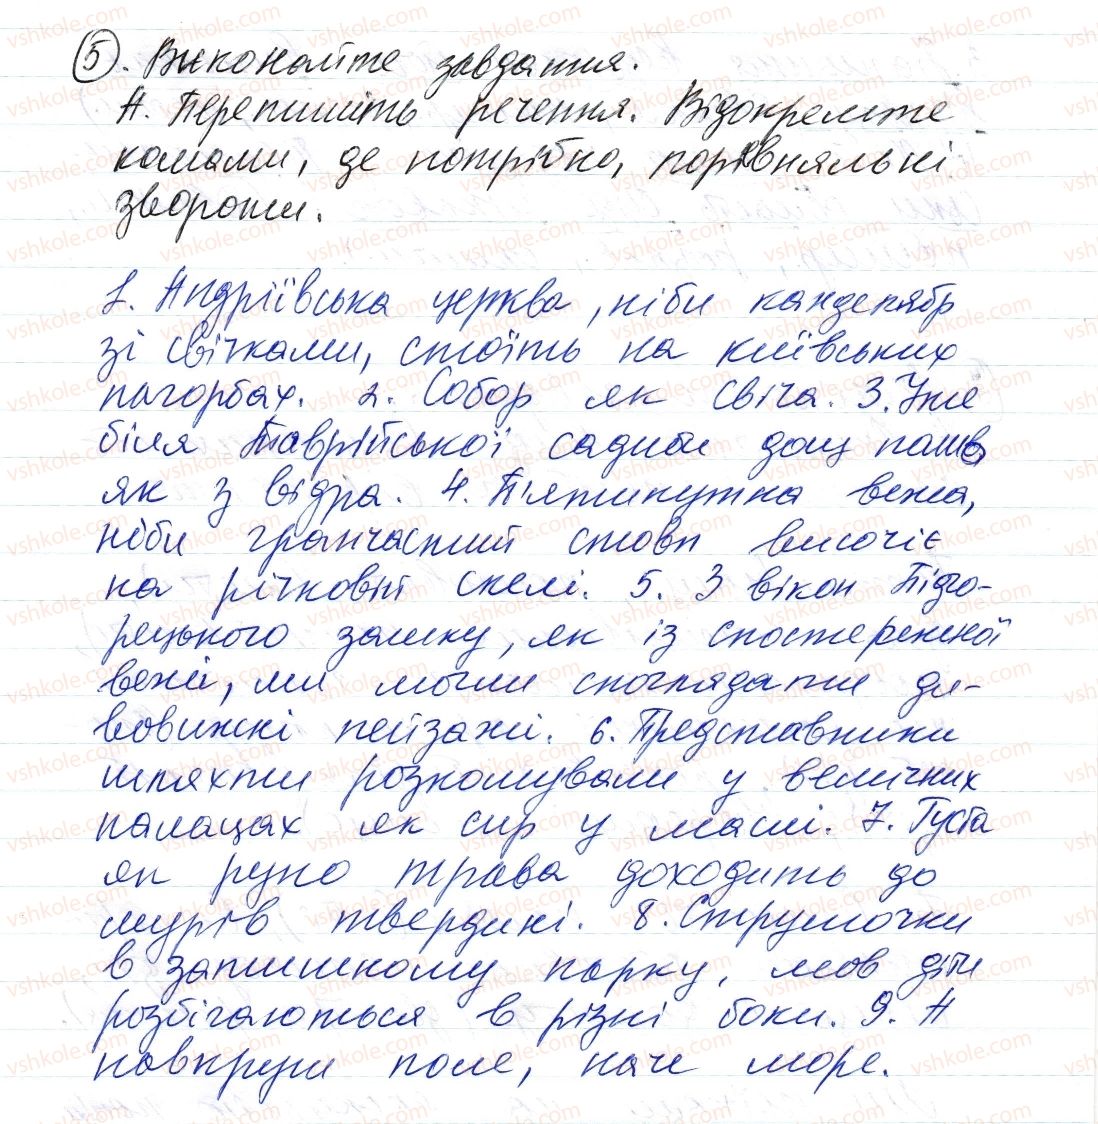 5. Виконайте завдання.
А. Перепишіть речення. Відокремте
комами, де потрібно, порівняльні
звороти.
1. Андріївська церква, ніби канделябр
зі свічками, стоїть на київських
пагорбах. 2. Собор як свіча. 3. Уже
біля Таврійської садиби дощ полив
як з відра. 4. П'ятикутна вежа,
ніби гранчастий стовп височіє
на річковій скелі. 5. З вікон Підго-
рецького замку, як із спостережної
вежі, ми могли споглядати ди-
вовижні пейзажі. 6. Представники
шляхти розкошували у величних
палацах як сир у маслі. 7. Густа
як руно трава доходить до
мурів твердині. 8. Струмочки
в затишному парку, мов діти
розбігаються в різні боки. 9. А
навкруги поле, наче море.